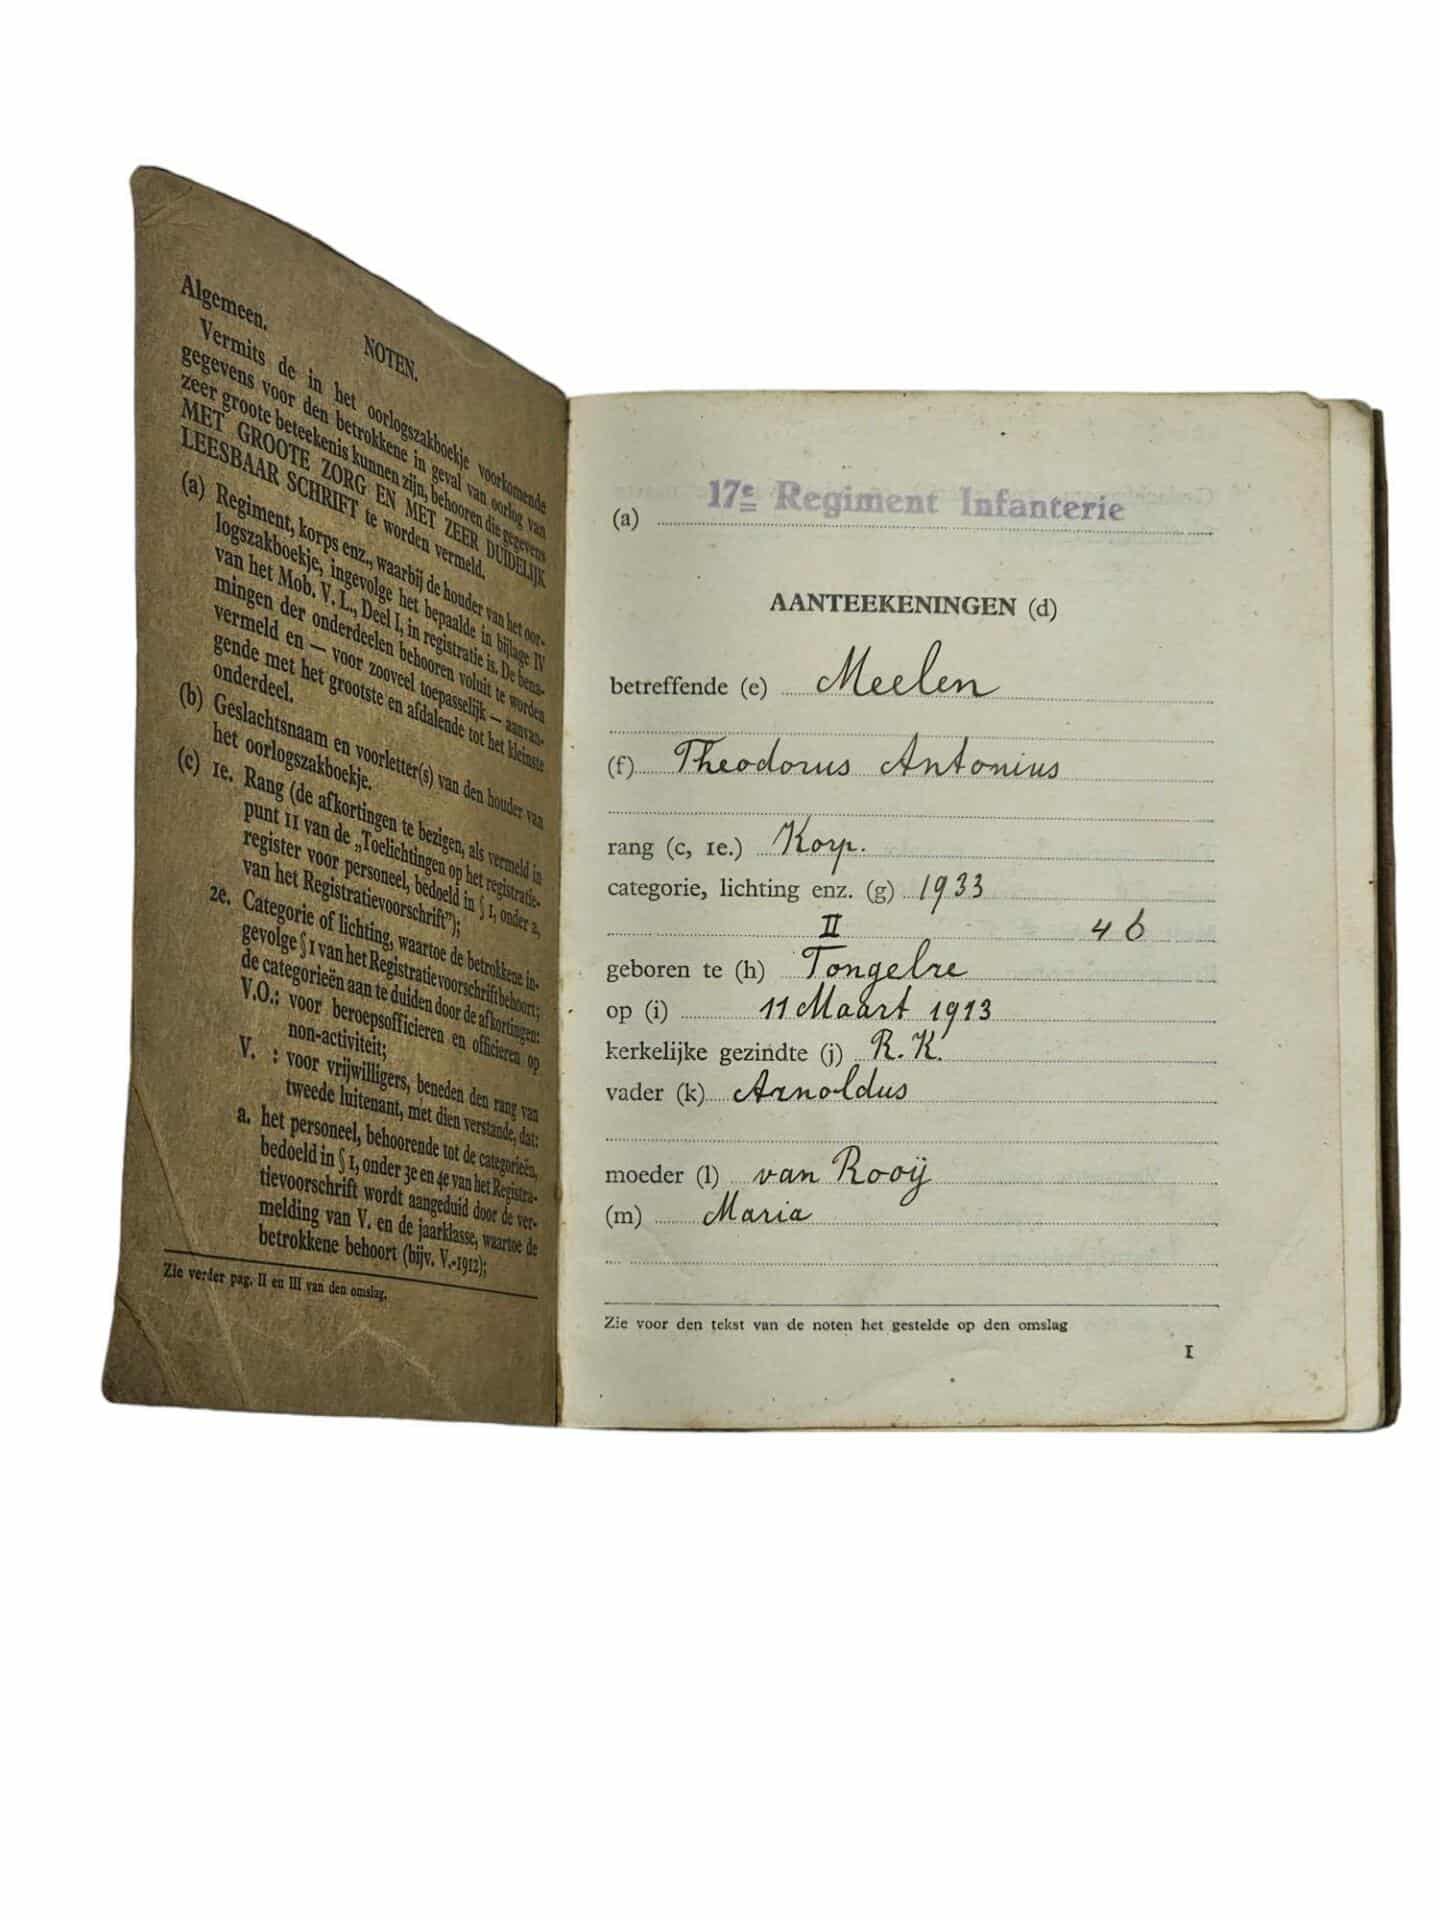 NOTEN.
Algemeen.
Vermits de in het oorlogszakboekje voorkomende
gegevens voor den betrokkene in geval van oorlog van
zeer groote beteekenis kunnen zijn, behooren die gegevens
MET GROOTE ZORG EN MET ZEER DUIDELIJK
LEESBAAR SCHRIFT te worden vermeld.
(a) Regiment, korps enz., waarbij de houder van het oor-
logszakboekje, ingevolge het bepaalde in bijlage IV
van het Mob. V. L., Deel I, in registratie is. De bena-
mingen der onderdeelen behooren voluit te worden
vermeld en — voor zooveel toepasselijk — aanvan-
gende met het grootste en afdalende tot het kleinste
onderdeel.
(b) Geslachtsnaam en voorletter(s) van den houder van
het oorlogszakboekje.
(c) 1e. Rang (de afkortingen te bezigen, als vermeld in
punt 11 van de „Toelichtingen op het registratie-
register voor personeel, bedoeld in § 1, onder a,
van het Registratievoorschrift");
2e. Categorie of lichting, waartoe de betrokkene in-
gevolge § 1 van het Registratievoorschrift behoort;
de categorieën aan te duiden door de afkortingen:
V.O.: voor beroepsofficieren en officieren op
non-activiteit;
V. : voor vrijwilligers, beneden den rang van
tweede luitenant, met dien verstande, dat:
a. het personeel, behoorende tot de categorieën,
bedoeld in § 1, onder 3e en 4e van het Registra-
tievoorschrift wordt aangeduid door de ver-
melding van V. en de jaarklasse, waartoe de
betrokkene behoort (bijv. V.-1912);
Zie verder pag. II en III van den omslag.
(a) 17e Regiment Infanterie
AANTEEKENINGEN (d)
betreffende (e) Meelen
(f) Theodorus Antonius
rang (c, 1e.) Korp.
categorie, lichting enz. (g) 1933
II 46
geboren te (h) Tongelre
op (i) 11 Maart 1913
kerkelijke gezindte (j) R.K.
vader (k) Arnoldus
moeder (l) van Rooij
(m) Maria
Zie voor den tekst van de noten het gestelde op den omslag
1